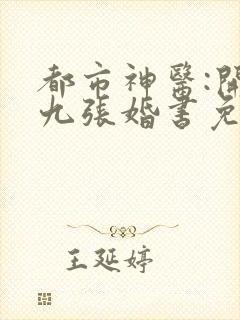 都市神醫:開
九張婚書免
王延婷